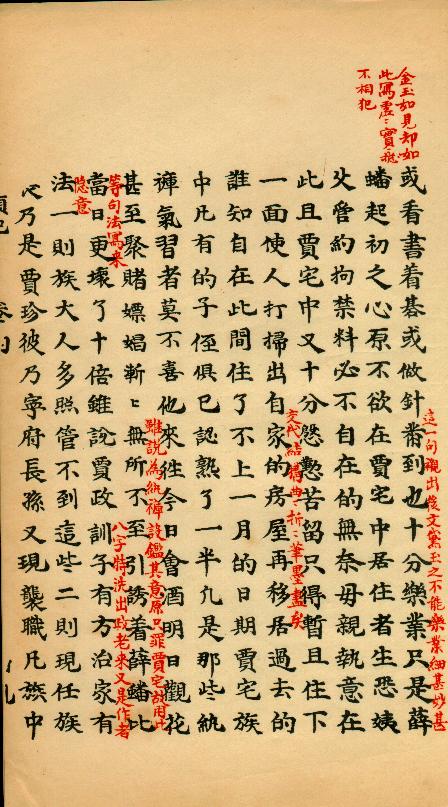 金玉如見却如
此寫虛虛實實
不相犯
或看書着碁或做針黹到也十分樂業只是薛
這一句襯出後文黛玉之不能樂業細甚妙甚
蟠起初之心原不欲在賈宅中居住者生恐姨
父管約拘禁料必不自在的無奈母親執意在
此且賈宅中又十分慇懃苦留只得暫且住下
交代結構曲曲折折筆墨盡矣
一面使人打掃出自家的房屋再移居過去的
誰知自在此間住了不上一月的日期賈宅族
中凡有的子侄俱已認熟了一半凡是那些紈
褲氣習者莫不喜他來往今日會酒明日觀花
雖說為紈褲設鑑其意原只罪賈宅故用此
等句法寫來
隱意
甚至聚賭嫖娼漸漸無所不至引誘着薛蟠比
當日更壞了十倍雖說賈政訓子有方治家有
八字特洗出政老來又是作者
法一則族大人多照管不到這些二則現任族
乃是賈珍彼乃寧府長孫又現襲職凡族中